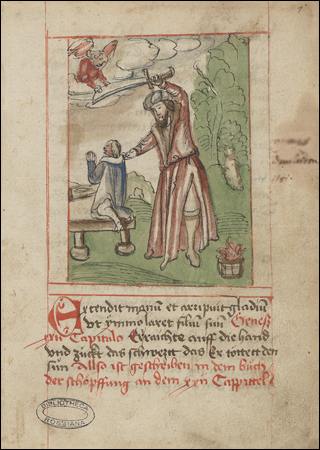 Extendit manū et arripuit gladiū
Vt ymmolaret filiū suū Genes
xxii Capitulo Er rackte auff die hand
vnd zuckt das schwertt das Er tottett den
sun Also ist geschriben in dem buch
der schöpffung an dem xxii Cappittel
BIBLIOTHECA
ROSSIANA